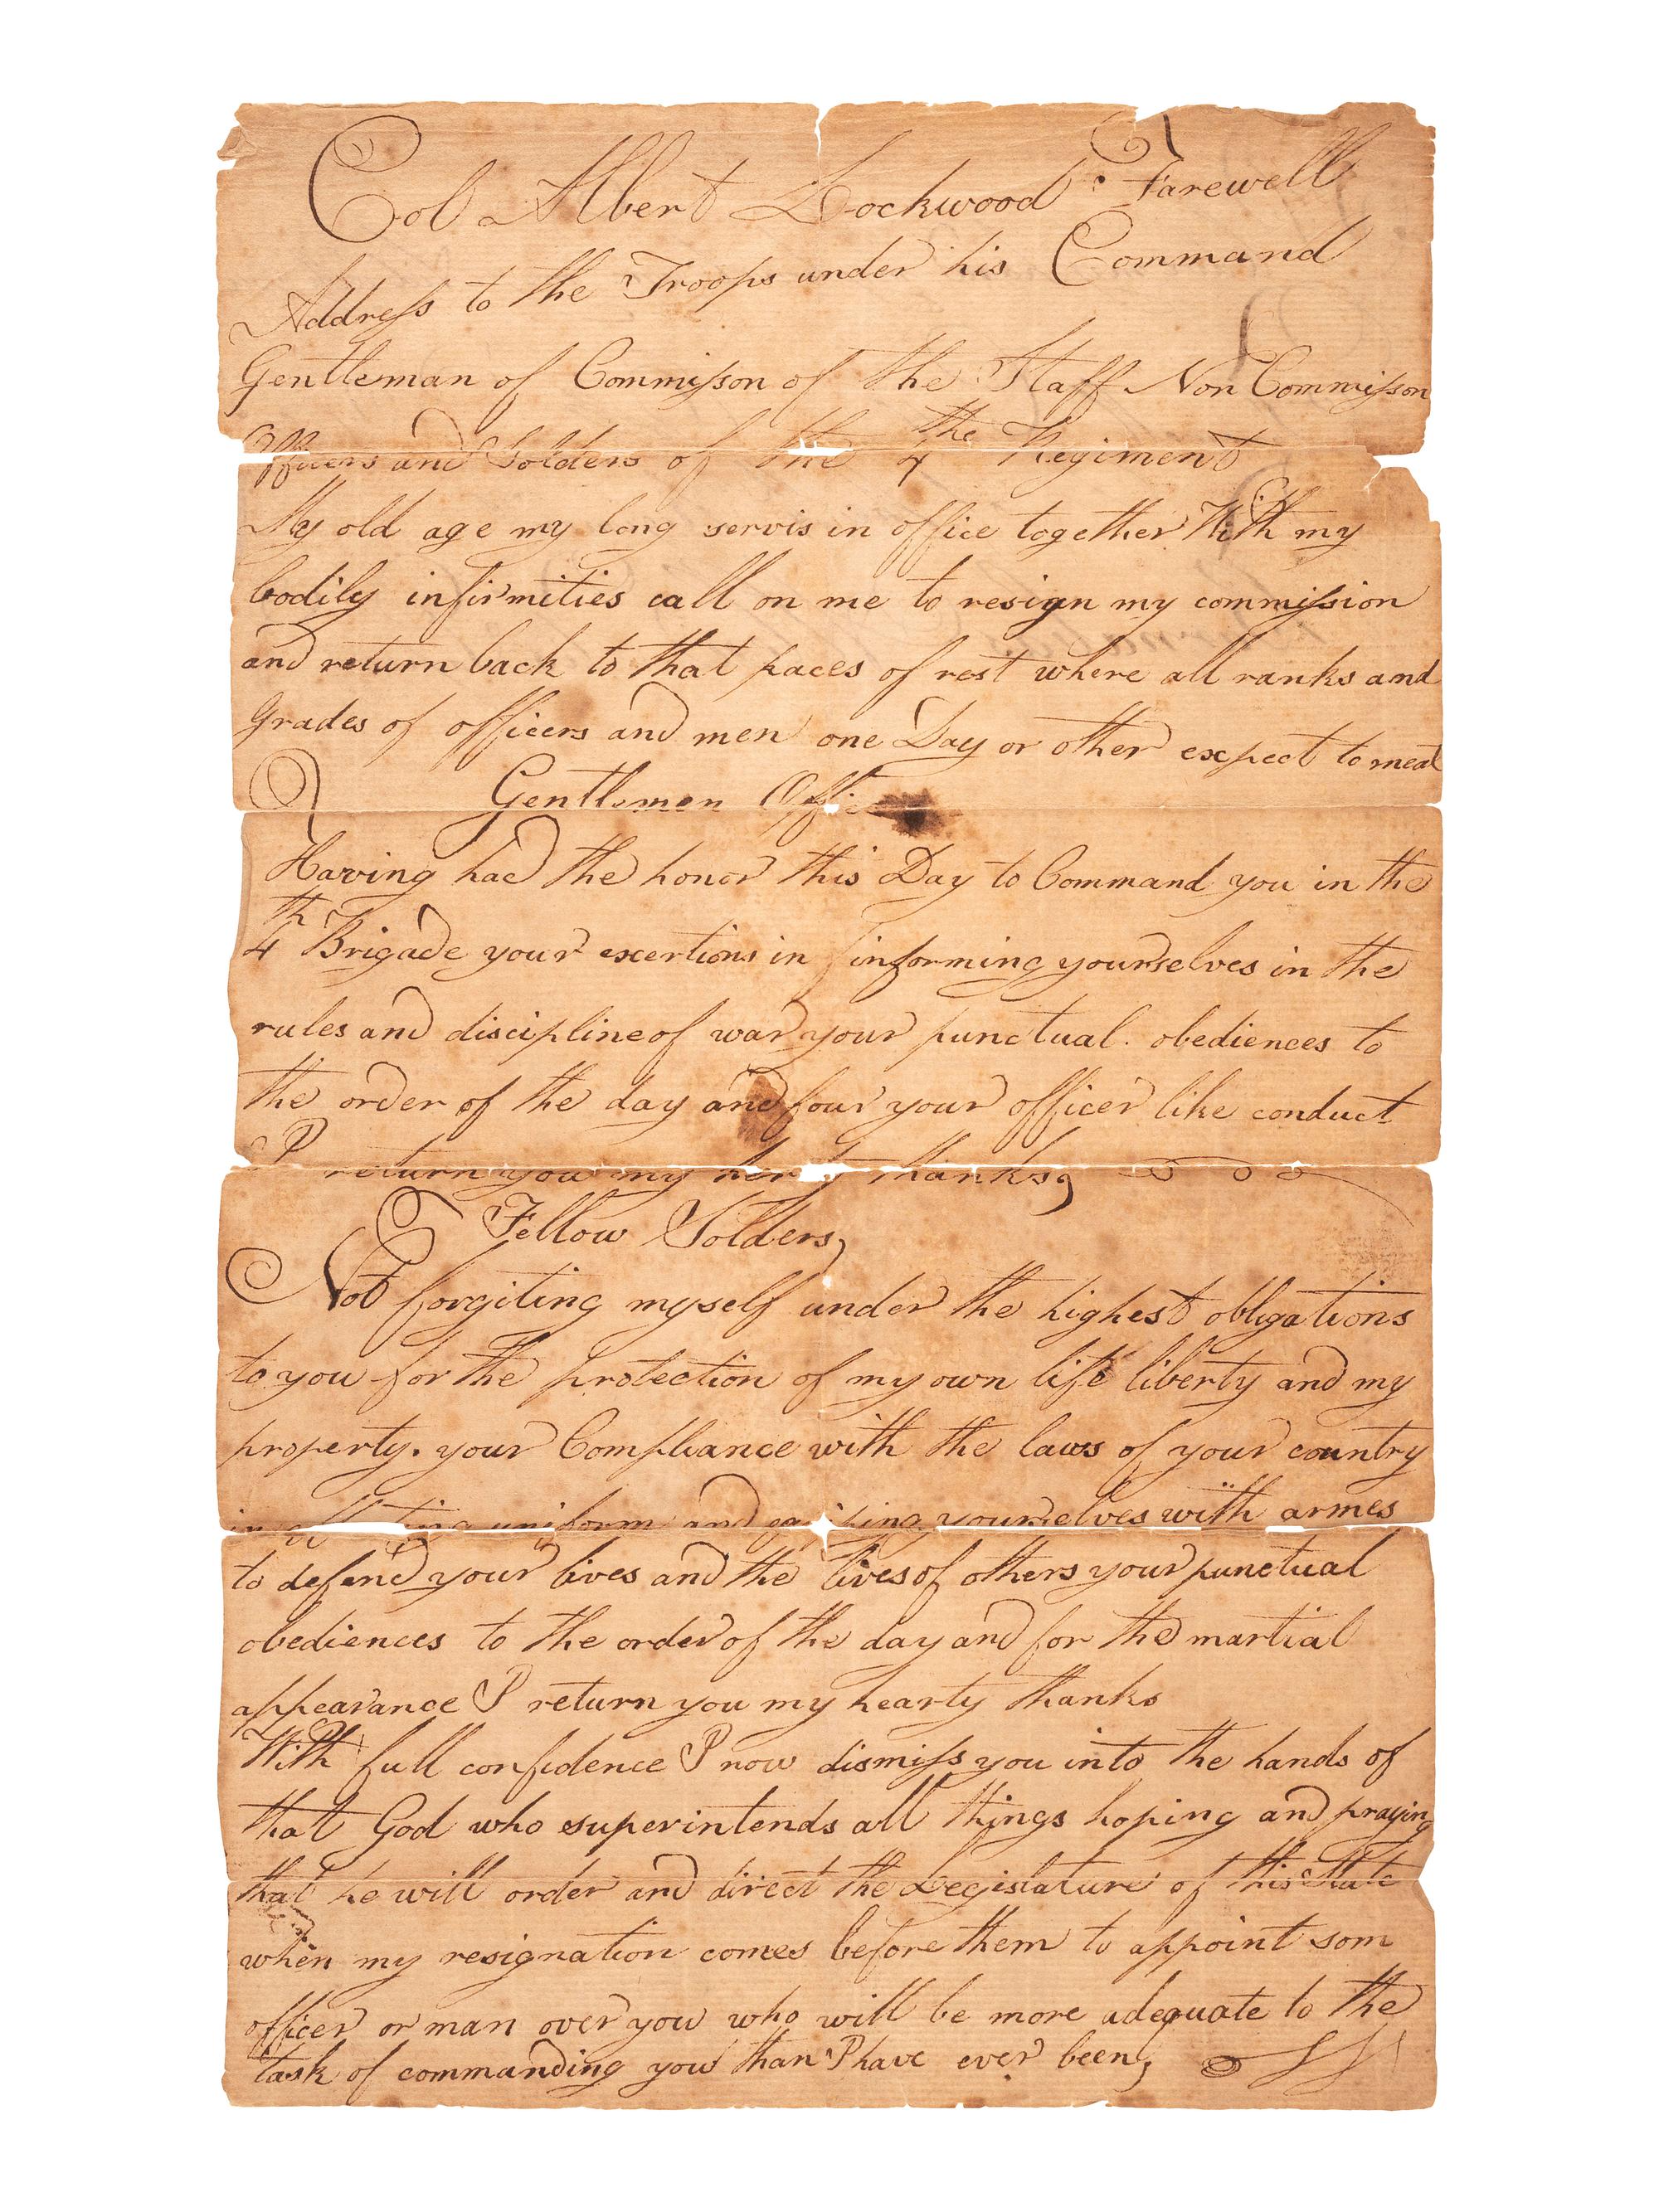 Col Albert Lockwood Farewell
Address to the Troops under his Command
Gentleman of Commisson of the Staff Non Commisson
Officers and Solders of the 4the Regiment
My old age my long servis in office together With my
bodily infirmities call on me to resign my commission
and return back to that paces of rest where all ranks and
grades of officers and men one Day or other expect to meat
Gentlemen Offic
Having had the honor this Day to Command you in the
4th Brigade your exertions in informing yourselves in the
rules and discipline of war your punctual. obediences to
the order of the day and four your officer like conduct
I return you my thanks,
Fellow Solders,
Not forgiting myself under the highest obligations
to you for the protection of my own life liberty and my
property. your Compliance with the laws of your country
in uniform and yourselves with armes
to defend your lives and the lives of others your punctual
obediences to the order of the day and for the martial
appearance I return you my hearty thanks
With full confidence I now dismiss you into the hands of
that God who superintends all things hoping and praying
that he will order and direct the Legislature of this State
when my resignation comes before them to appoint som
officer or man over you who will be more adequate to the
task of commanding you than I have ever been,